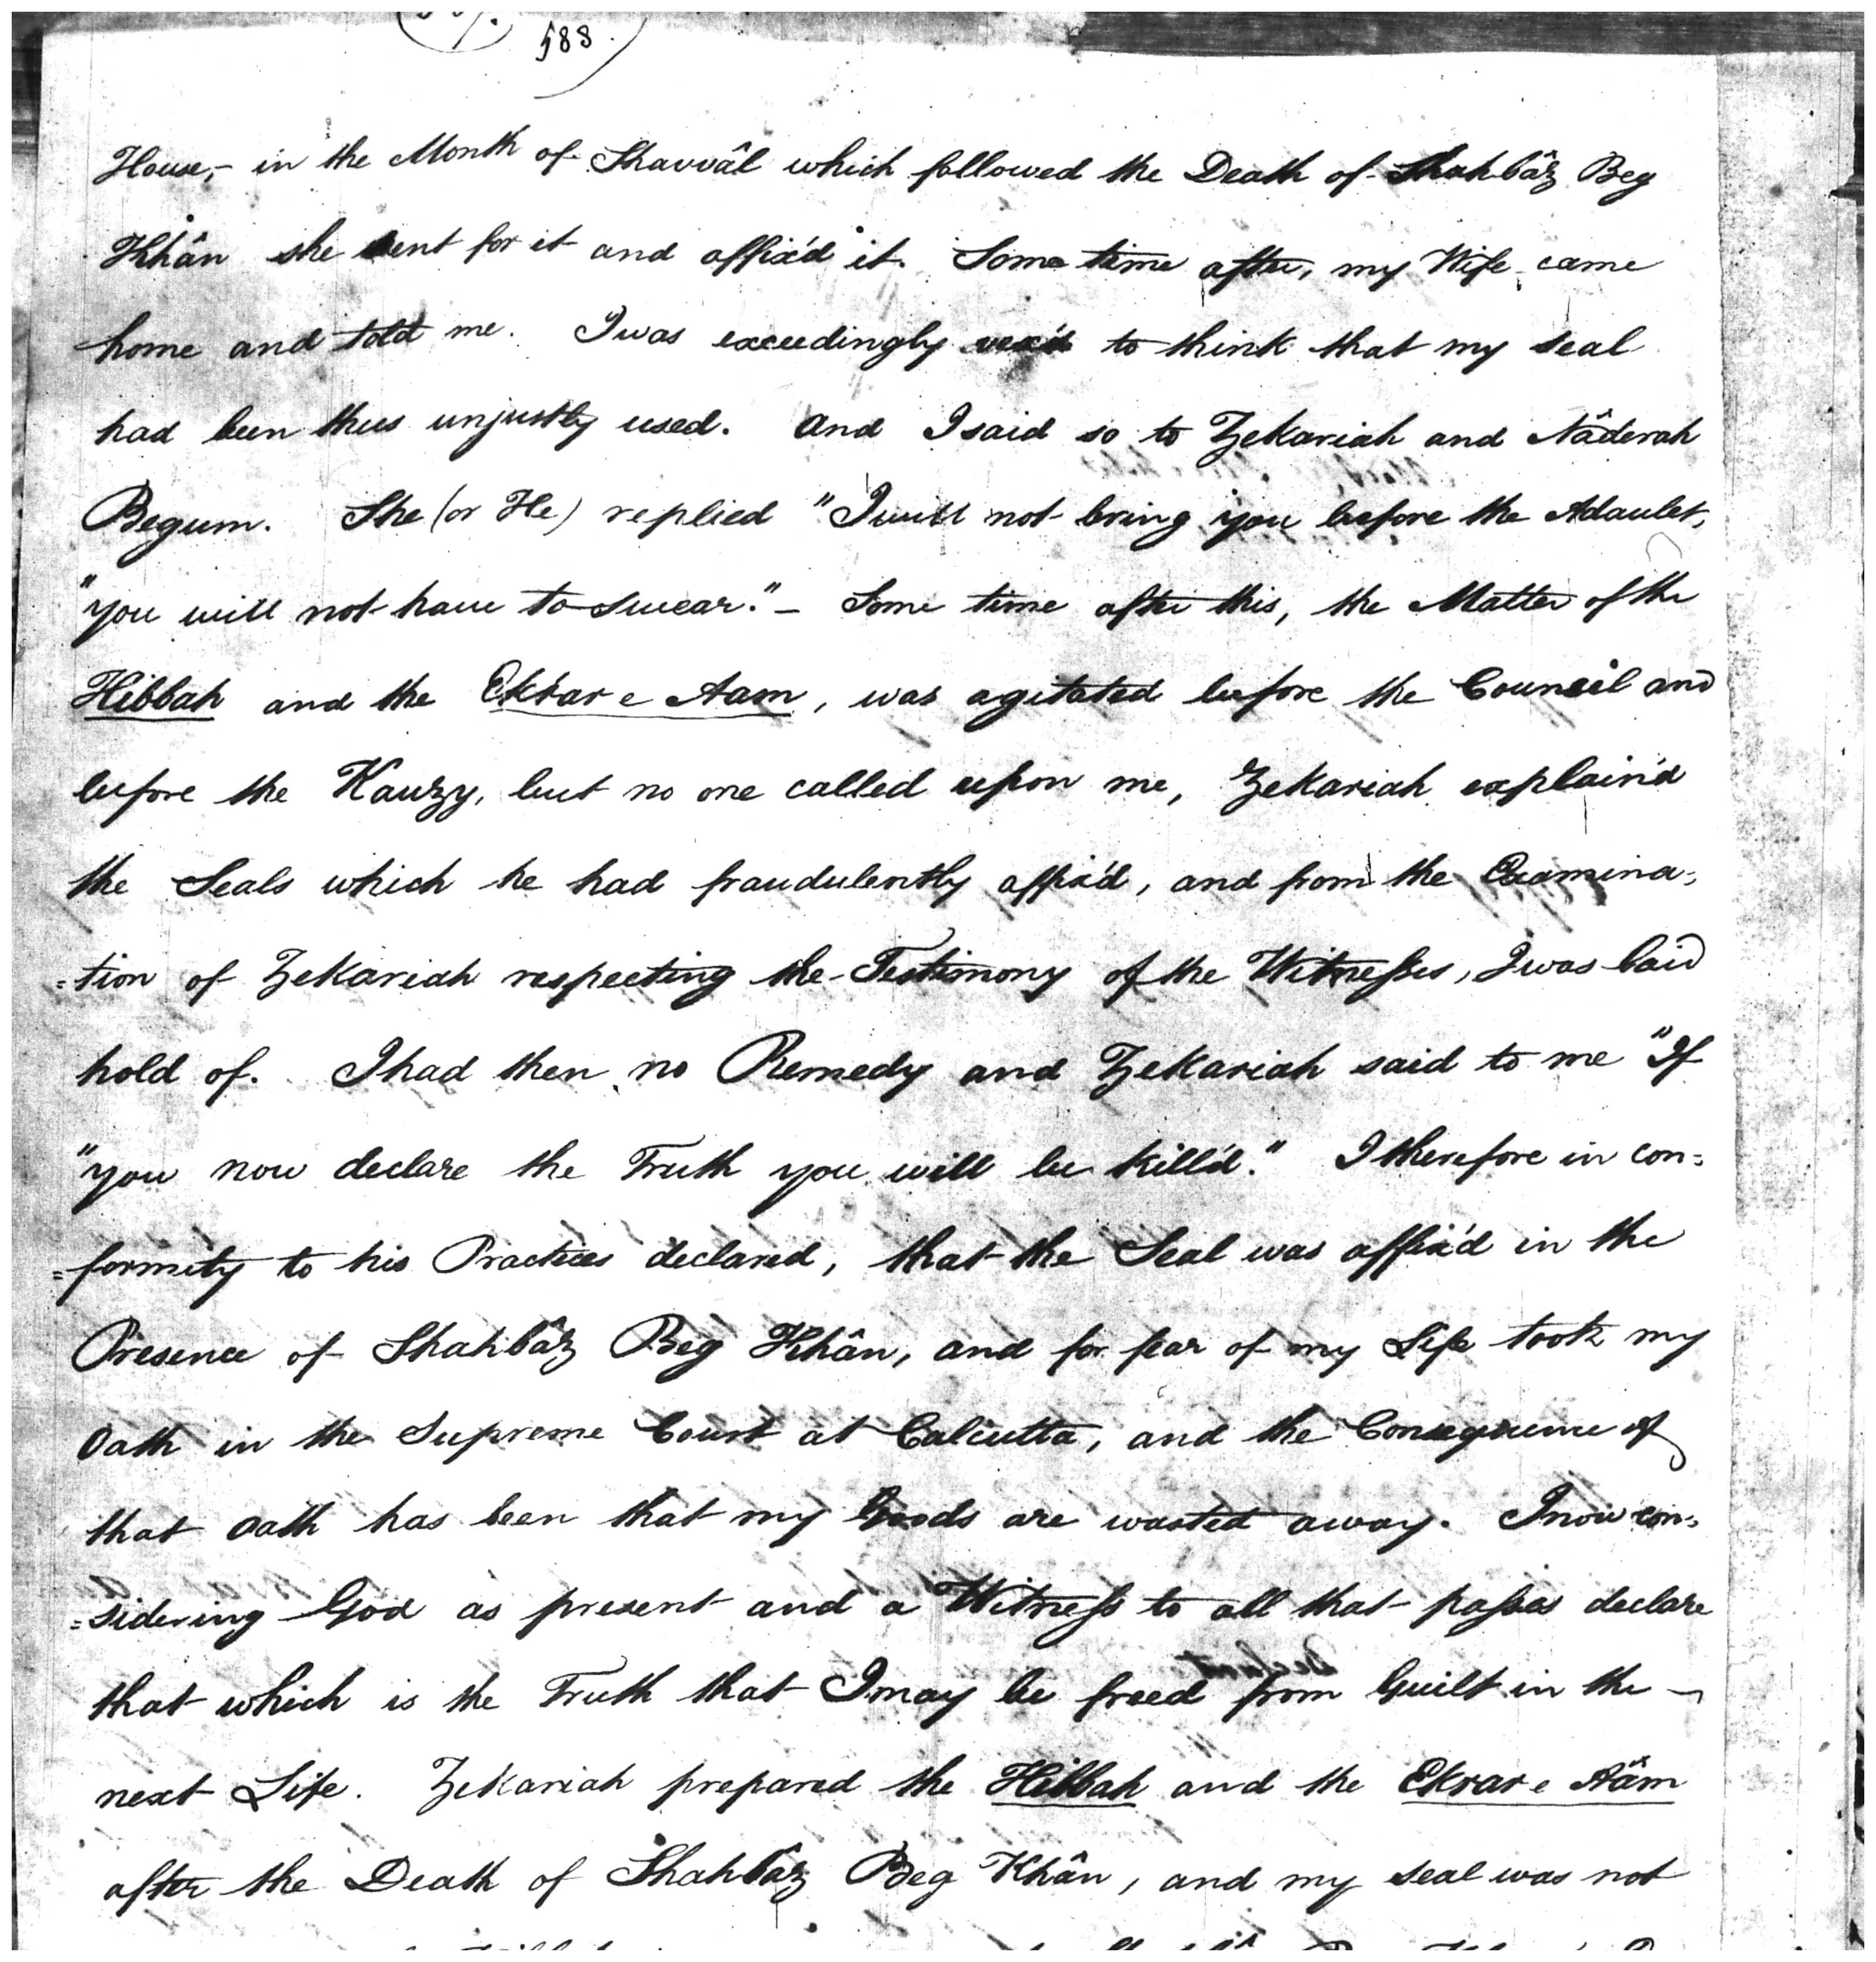 583.
House,- in the Month of Shavvâl which followed the Death of Shahbâz Beg
Khân she sent for it and affix'd it. Some time after, my Wife came
home and told me. I was exceedingly vex'd to think that my seal
had been thus unjustly used. And I said so to Zekariah and Nâderah
Begum. She (or He) replied "I will not bring you before the Adaulet,
"you will not have to swear." - Some time after this, the Matter of the
Hibbah and the Ekrar e Aam, was agitated before the Council and
before the Kauzy, but no one called upon me, Zekariah explain'd
the Seals which he had fraudulently affix'd, and from the Examina=
=tion of Zekariah respecting the Testimony of the Witnesses, I was laid
hold of. I had then no Remedy and Zekariah said to me "If
"you now declare the Truth you will be kill'd." I therefore in con=
=formity to his Practices declared, that the Seal was affix'd in the
Presence of Shahbâz Beg Khân, and for fear of my Life took my
Oath in the Supreme Court at Calcutta, and the Consequence of
that Oath has been that my Goods are wasted away. I now con=
=sidering God as present and a Witness to all that passes declare
that which is the Truth that I may be freed from Guilt in the -
next Life. Zekariah prepared the Hibbah and the Ekrar e Aâm
after the Death of Shahbâz Beg Khân, and my seal was not